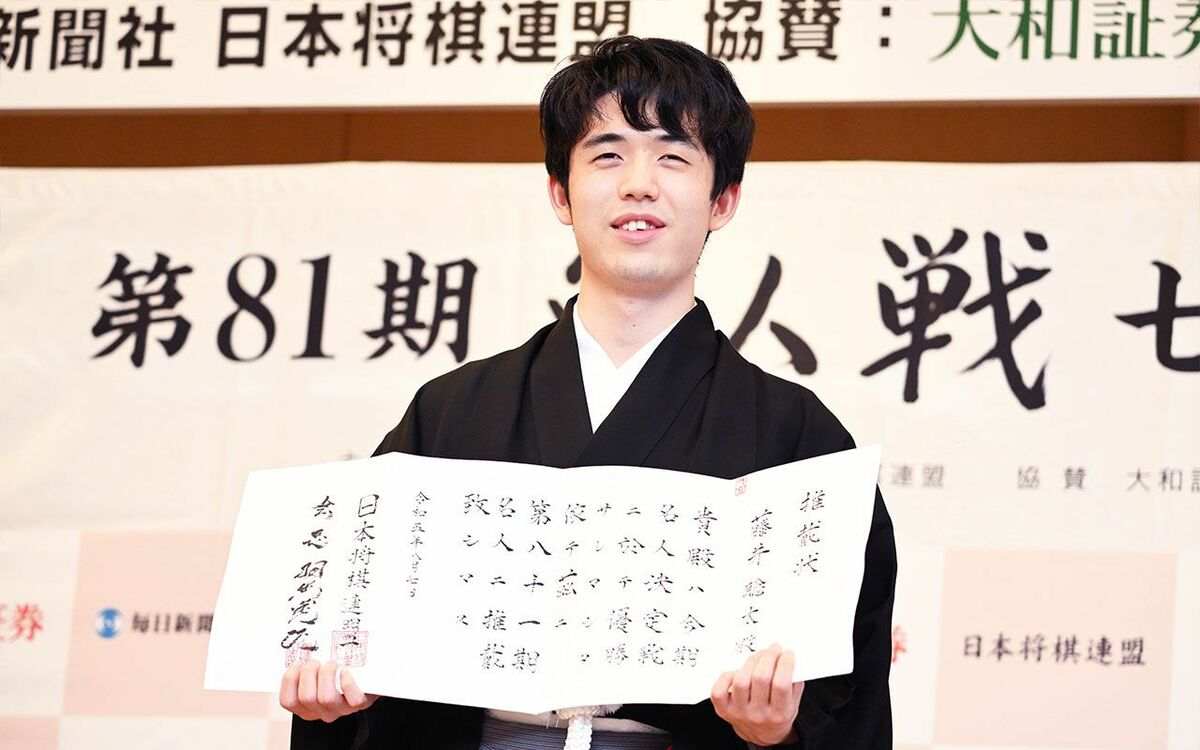 新聞社 日本将棋連盟 協賛：大和証券
第81期 名人戦 七
連盟 協賛 大和証
推戴状
藤井聡太殿
貴殿ハ今期
名人決定戦
ニ於テ優勝
サレマシタ
依テ茲ニ
第八十一期
名人ニ推戴
致シマス
令和五年八月七日
日本将棋連盟
会長 羽生善治
証券
毎日新聞
日本将棋連盟